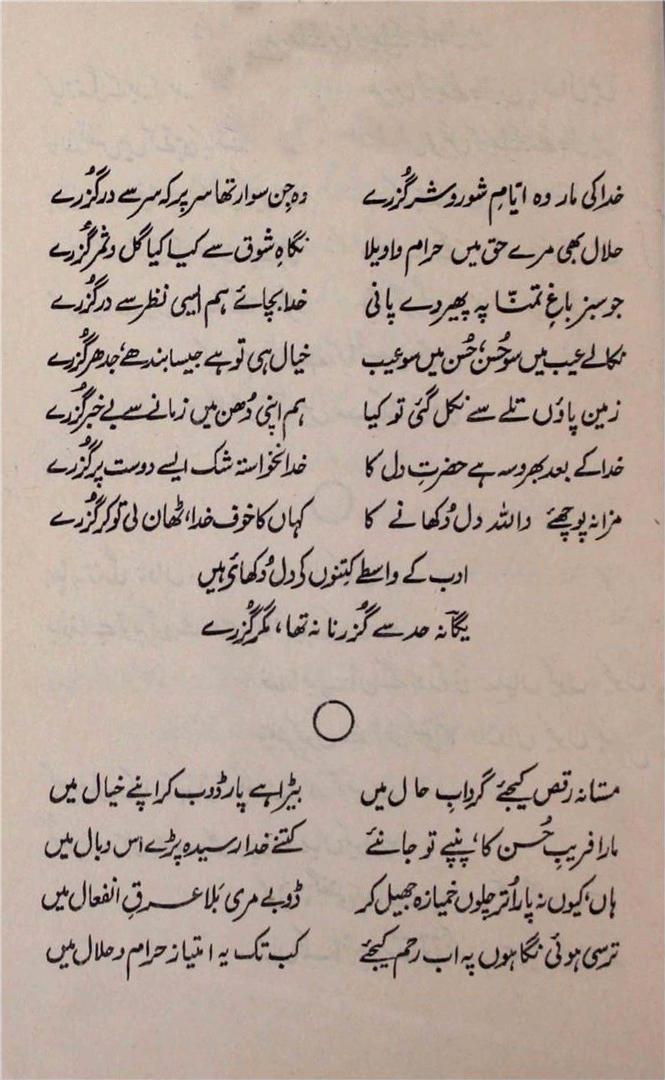 خدا کی مار وہ ایّامِ شور و شر گُزرے وہ جِن سوار تھا سر پر کہ سر سے در گُزرے
حلال بھی مرے حق میں حرام واویلا نگاہِ شوق سے کیا کیا گل و ثمر گُزرے
جو سبز باغِ تمنّا پہ پھیر دے پانی خدا بچائے ہم ایسی نظر سے در گُزرے
نکالے عیب میں سو حُسن، حُسن میں سو عیب خیال ہی تو ہے جیسا بندھے، جدھر گُزرے
زمین پاؤں تلے سے نکل گئی تو کیا ہم اپنی دُھن میں زمانے سے بے خبر گُزرے
خدا کے بعد بھروسہ ہے حضرتِ دل کا خدانخواستہ شک ایسے دوست پر گُزرے
مزا نہ پوچھئے واللہ دل دُکھانے کا کہاں کا خوف خدا، ٹھان لی تو کر گُزرے
ادب کے واسطے کِتنوں کی دل دُکھائے ہیں
یگانہؔ حد سے گُزرنا نہ تھا، مگر گُزرے
مستانہ رقص کیجئے گردابِ حال میں بیڑا ہے پار ڈوب کر اپنے خیال میں
مارا فریبِ حُسن کا، پنپے تو جانئے کتنے خدا رسیدہ پڑے اس وبال میں
ہاں، کیوں نہ پار اُتر چلوں خمیازہ جھیل کر ڈوبے مری بَلا عرقِ انفعال میں
ترسی ہوئی نگاہوں پہ اب رحم کیجئے کب تک یہ امتیاز حرام و حلال میں